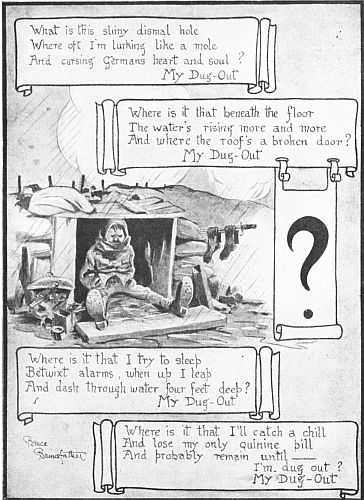 What is this slimy dismal hole
Where oft I'm lurking like a mole
And cursing Germans heart and soul?
My Dug-Out
Where is it that beneath the floor
The water's rising more and more
And where the roof's a broken door?
My Dug-Out
?
Where is it that I try to sleep
Betwixt alarms, when up I leap
And dash through water four feet deep?
My Dug-Out
Bruce
Bairnsfather
Where is it that I'll catch a chill
And lose my only quinine pill
And probably remain until ——
I'm dug out?
My Dug-Out